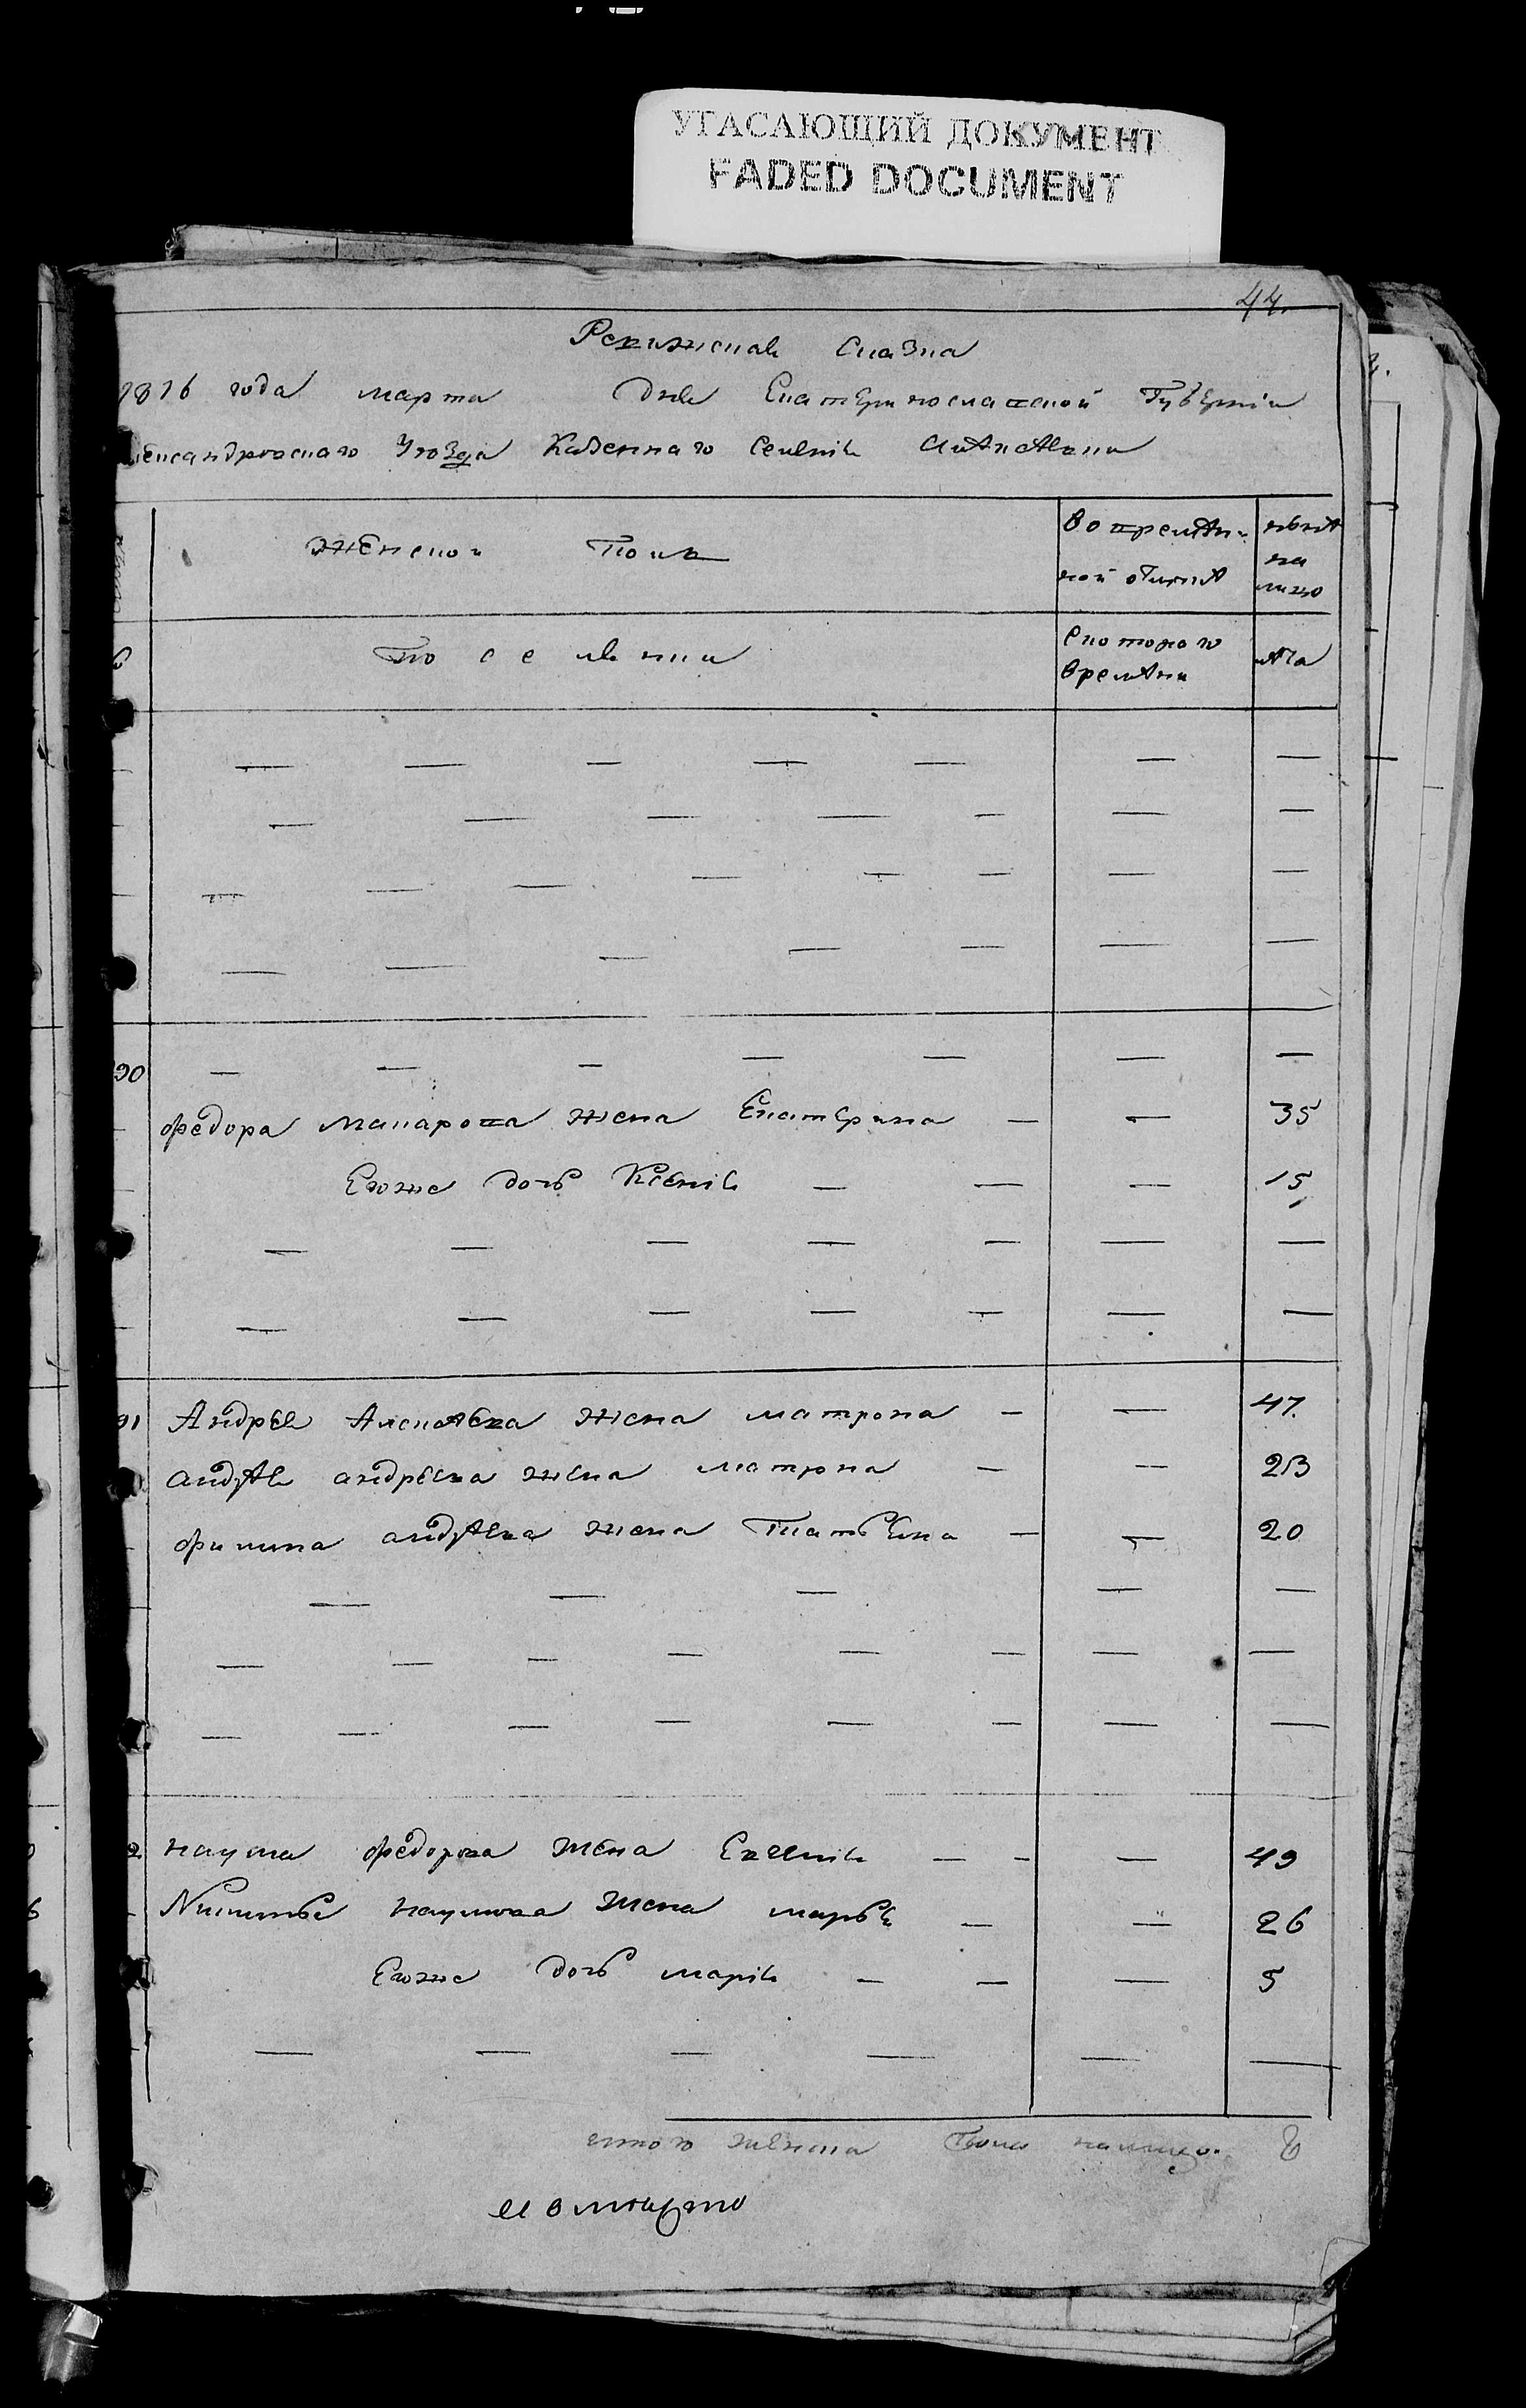 УГАСАЮЩИЙ ДОКУМЕНТ
FADED DOCUMENT
44.
Ревижская Сказка
1816 года марта дня Екатеринославской Губернiи
лександровскаго Уезда Казеннаго Селенiя
Женской Полъ
во времянной отлучке
ныне на лицо
По селянки
Скотораго времяни
лета
90
Федора макарова жена Екатерина — — 35
Егоже дочь Ксенiя — — — 15
91 Андрея Алексеева жена матрона — — 47.
андрея андреева жена матрона — — 23
филипа андреева жена Татьяна — — 20
2 наума федорова жена Евгенiя — — — 49
Никиты наумова жена марья — — 26
Егоже дочь марiя — — — 5
итого женска пола налицо. 8